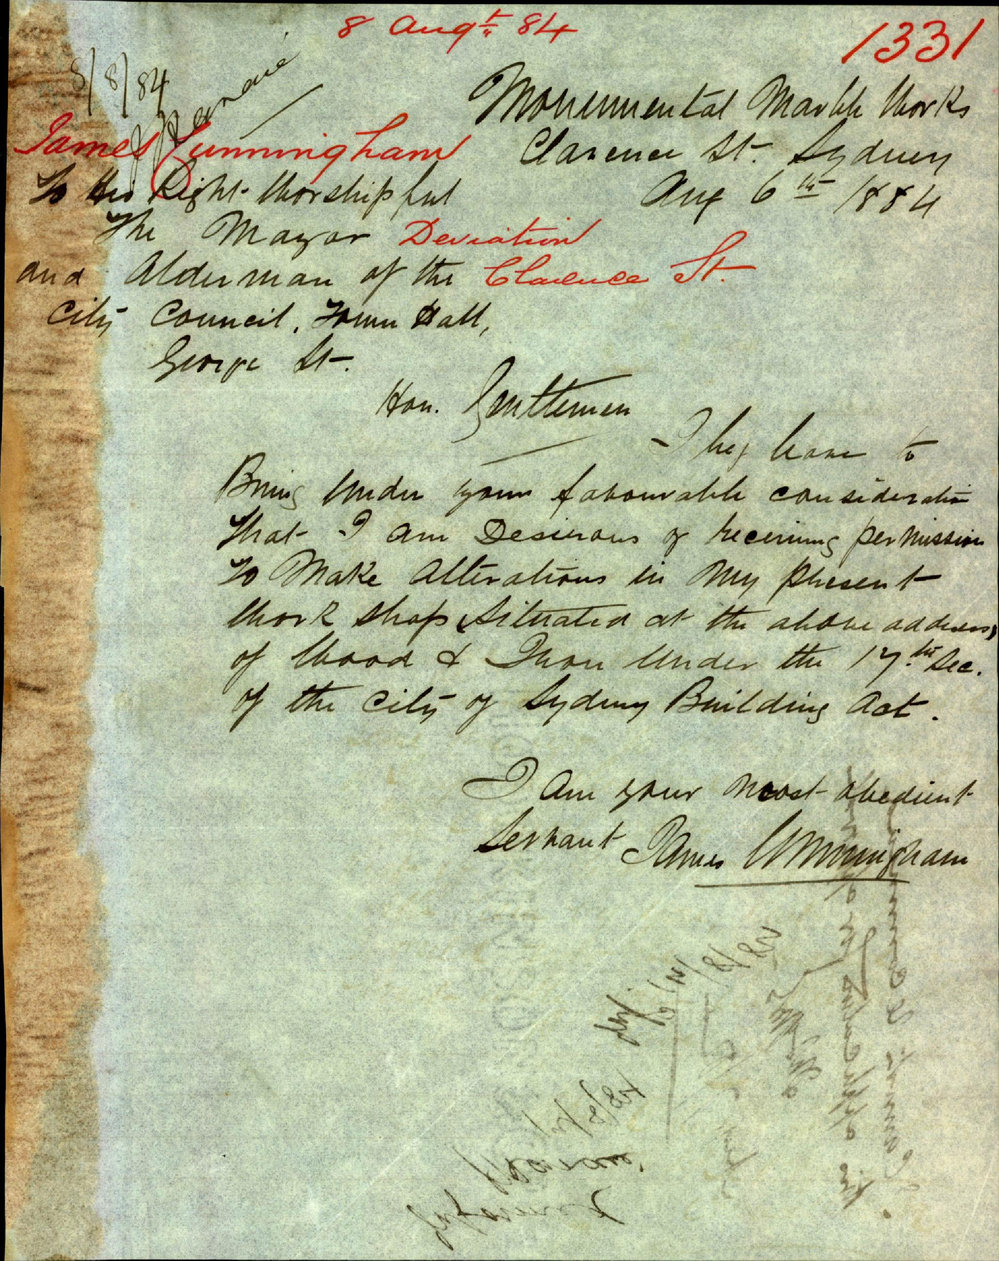 8 Augt. 84
1331
8/8/84
Monumental Marble Works
James Cunningham
Clarence St. Sydney
To His Right Worshipful
Aug 6th 1884
The Mayor Deviation
and Alderman of the Clarence St.
City Council, Town Hall,
George St.
Hon. Gentlemen
I beg leave to
Bring Under your favourable consideration
that I am Desierous of receiving permission
to Make Alterations in My present
Work shop situated at the above address,
of Wood & Iron Under the 17th Sec.
of the City of Sydney Building Act.
I am your most obedient
Servant James Cunningham